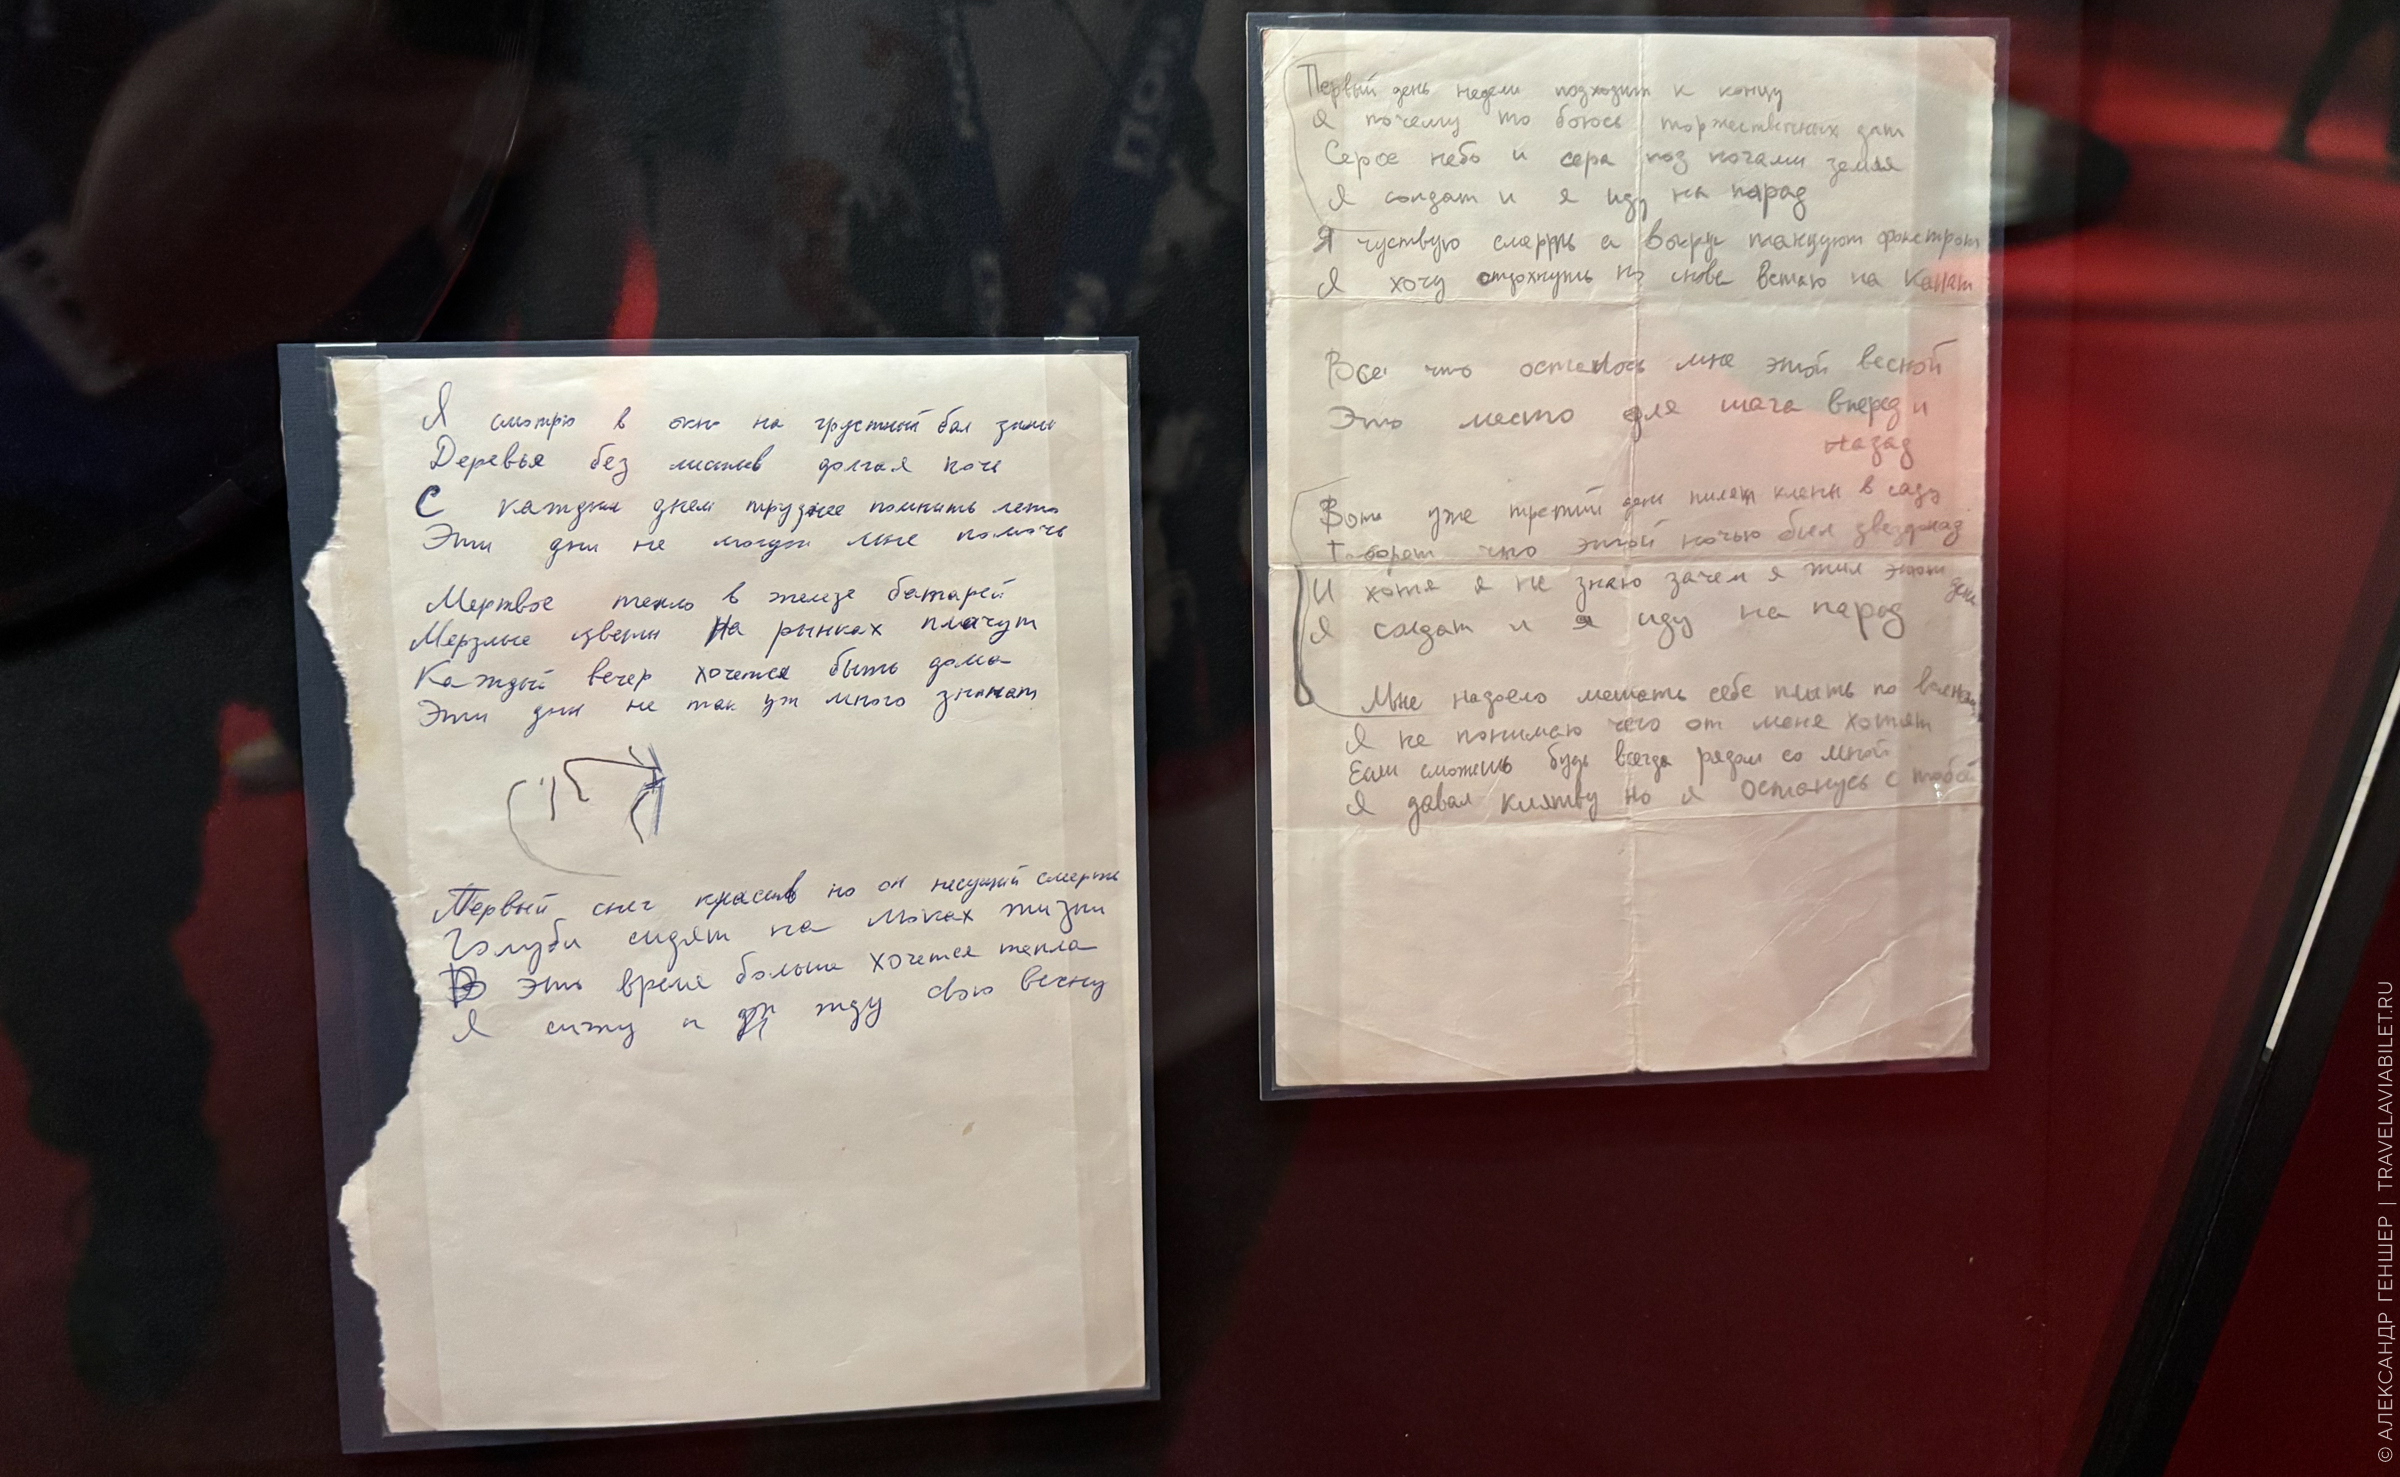 Я смотрю в окно на грустный бал зимы
Деревья без листьев долгая ночь
С каждым днем труднее помнить лето
Эти дни не могут мне помочь
Мертвое тепло в железе батарей
Мерзлые цветы На рынках плачут
Каждый вечер хочется быть дома
Эти дни не так уж много значат
Первый снег красив но он несущий смерть
Голуби сидят на люках жизни
В это время больше хочется тепла
Я сижу и жду свою весну
Первый день недели подходит к концу
Я почему то боюсь торжественных дат
Серое небо и сера под ногами земля
Я солдат и я иду на парад
Я чуствую смерть а вокруг танцуют фокстрот
Я хочу отдохнуть но снова встаю на Канат
Все что осталось мне этой весной
Это место для шага вперед и
назад
Вот уже третий день пилят клены в саду
Говорят что этой ночью был звездопад
И хотя я не знаю зачем я жил этот день
Я солдат и я иду на парад
Мне надоело мешать себе плыть по волнам
Я не понимаю чего от меня хотят
Если сможешь будь всегда рядом со мной
Я давал клятву но я останусь с тобой
© АЛЕКСАНДР ГЕНШЕР | TRAVELAVIABILET.RU